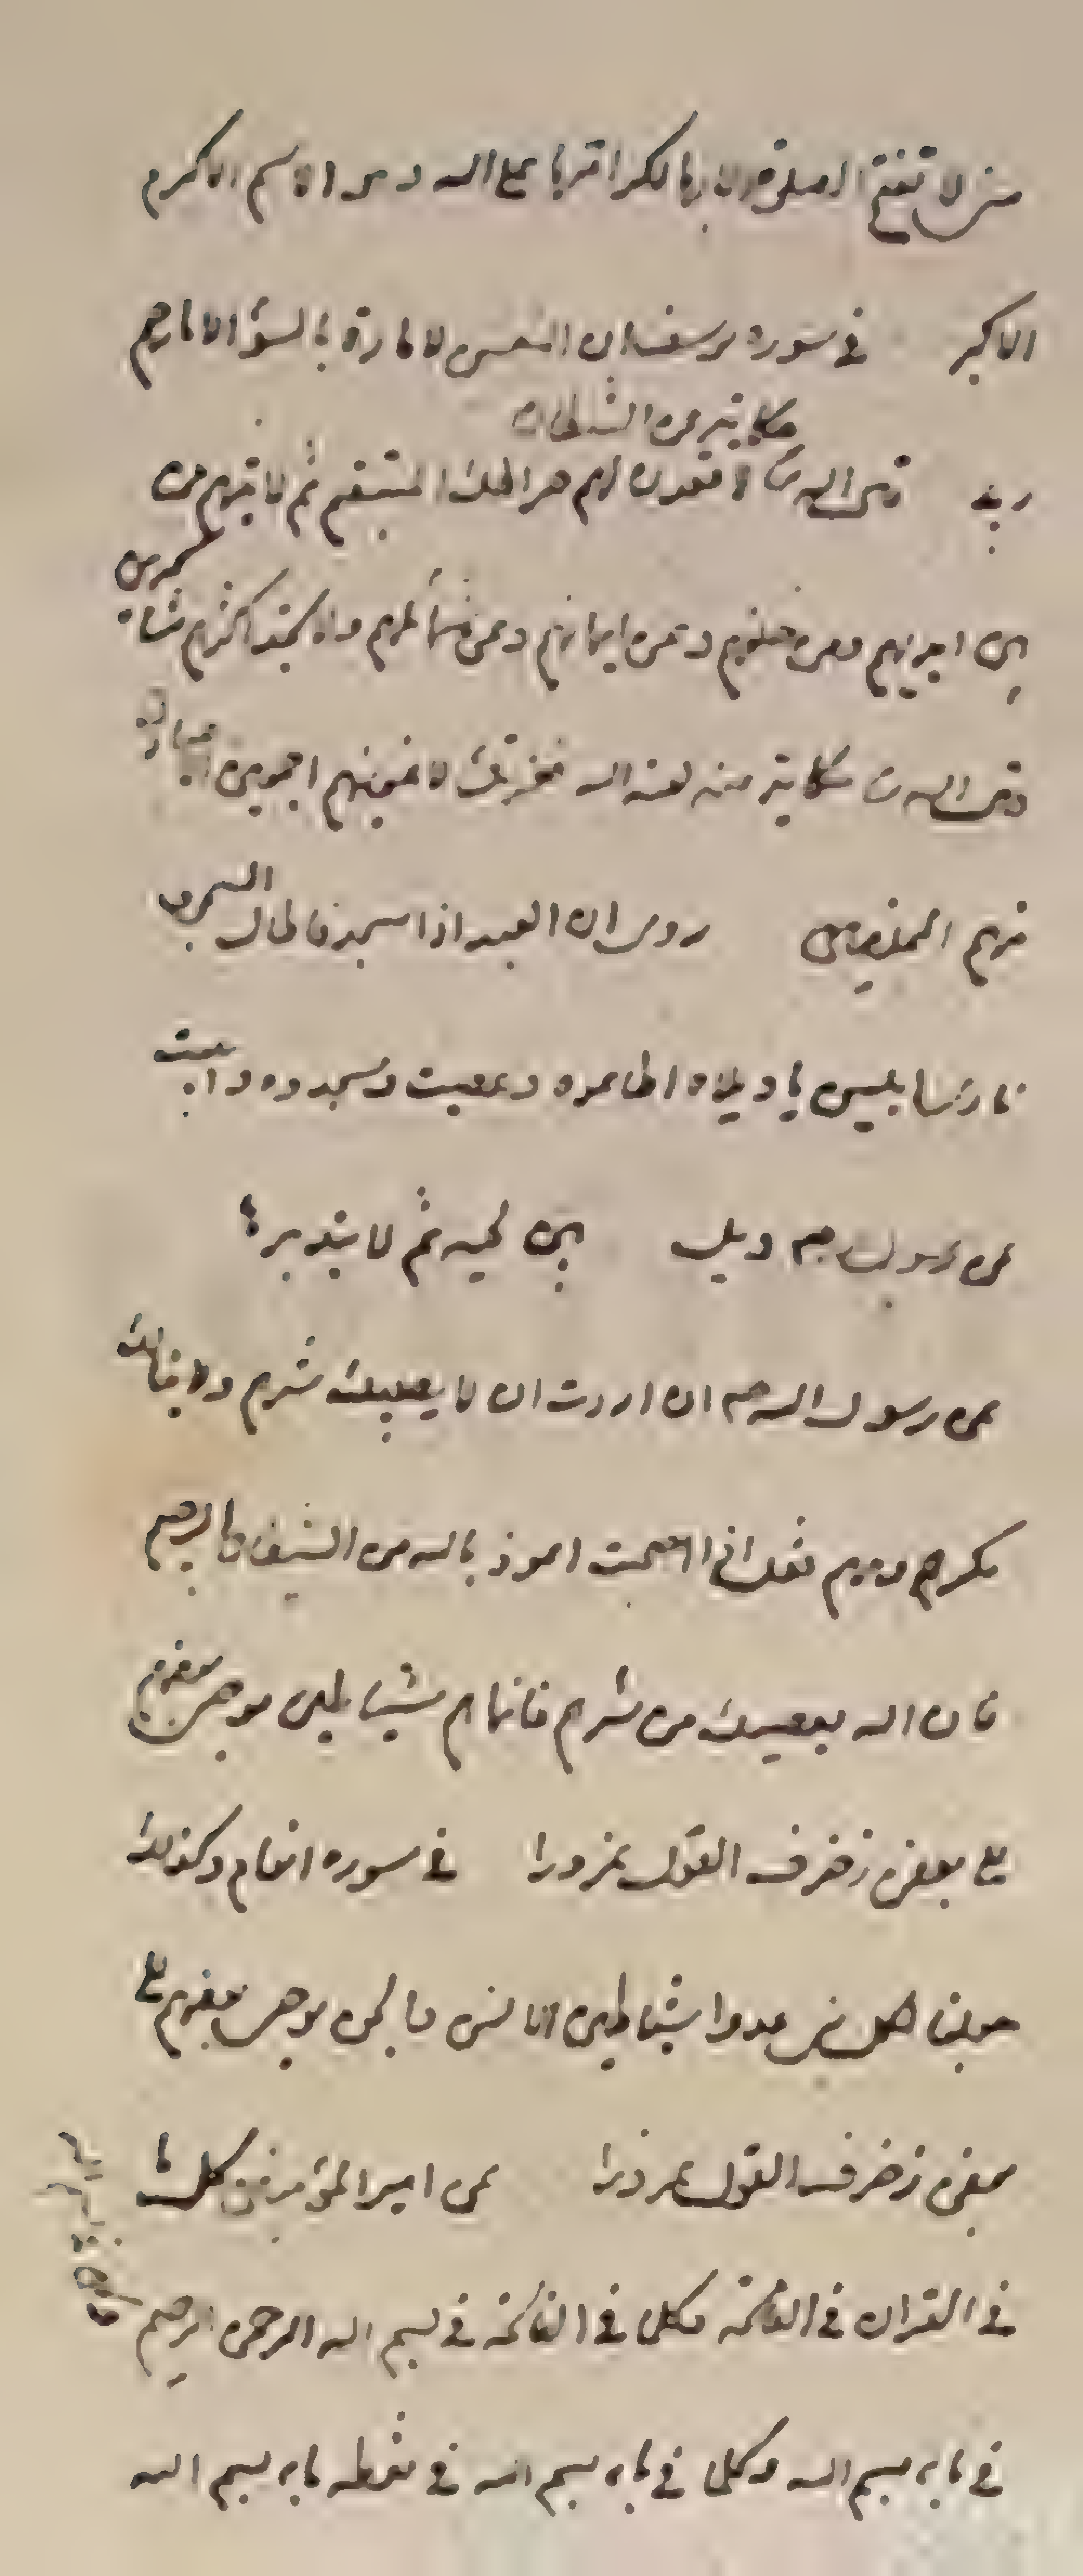 لا تفتح الصلوة الا بها لكر اقربا مع الله و الاسم الاكرم
الاكبر في سوره يوسف ان النفس لامارة بالسؤ الا ما رحم
ربي حكاية من الشيطان
قال الله لاقعدن لهم صراطك المستقيم ثم لاتينهم من
بين ايديهم ومن خلفهم وعن ايمانهم وعن شمائلهم ولا تجد اكثرهم شاكرين
وقال الله حكاية منه لعنه الله فبعزتك لاغوينهم اجمعين الا عبادك
منهم المخلصين روى ان العبد اذا سجد فاطال السجود
نادى ابليس يا ويلاه اطاع وعصيت وسجدوا وابيت
عن رسول ويل لمن ثم لا يتدبر
عن رسول الله ص ان اردت ان لا يصيبك شرهم ولا ينالك
مكرهم فقل اذا اصبحت اعوذ بالله من الشيطان الرجيم
فان الله يعيذك من شرهم فانهم شياطين يوحى بعضهم
الى بعض زخرف القول غرورا في سوره انعام وكذلك
جعلنا لكل نبي عدوا شياطين الانس والجن يوحى بعضهم الى
بعض زخرف القول غرورا عن امير المؤمنين كل ما
في القران في الفاتحة وكل ما في الفاتحة في بسم الله الرحمن الرحيم
في باء بسم الله وكل ما في باء بسم الله في نقطه باء بسم الله